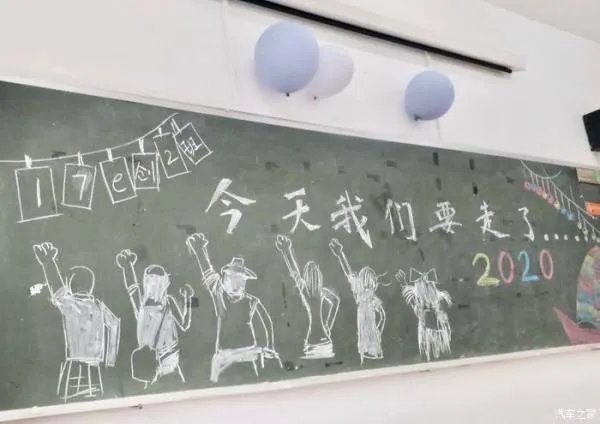 17e创2班
今天我们要走了......
2020
汽车之家